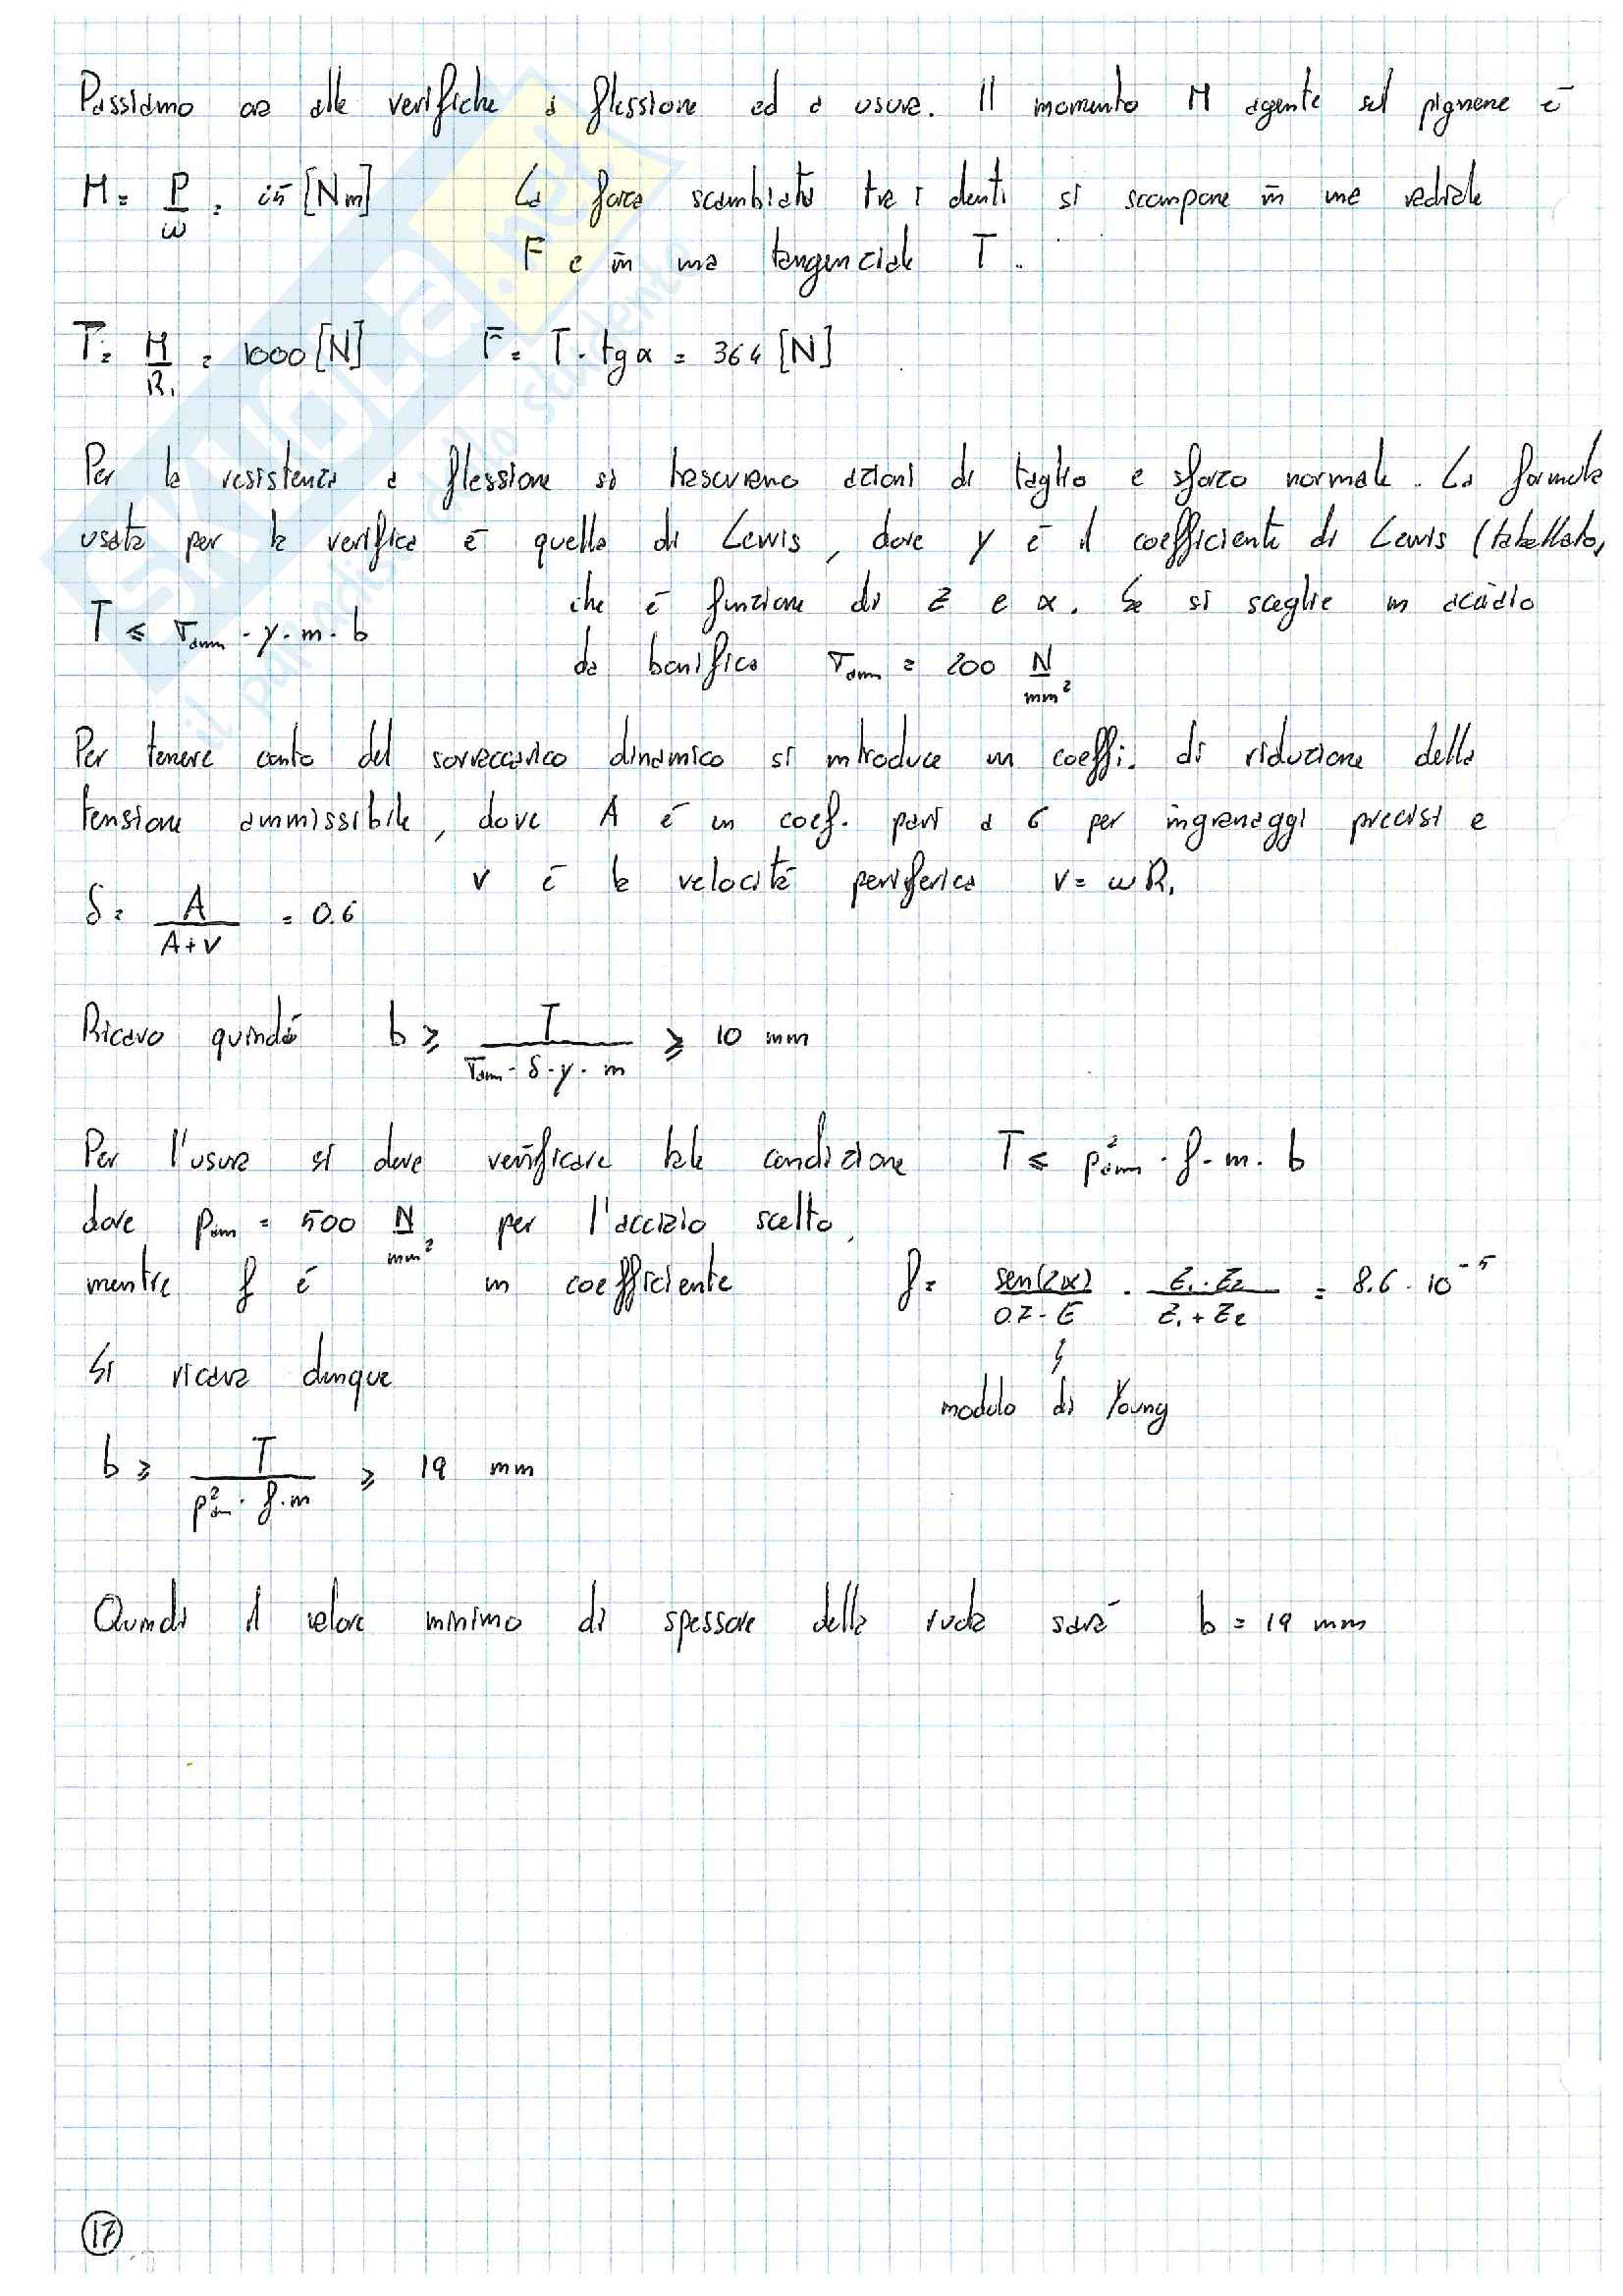 Passiamo ora alle verifiche a flessione ed a usura. Il momento M agente sul pignone è
M = P/ω = 25 [Nm] La forza scambiata tra i denti si scompone in una radiale
F e in una tangenziale T.
T = M/R₁ = 1000 [N] F = T · tg α = 364 [N]
Per la resistenza a flessione si trascurano azioni di taglio e sforzo normale. La formula
usata per la verifica è quella di Lewis, dove y è il coefficiente di Lewis (tabellato,
che è funzione di z e α. Se si sceglie un acciaio
T ≤ σamm · y · m · b
da bonifica σamm = 200 N/mm²
Per tenere conto del sovraccarico dinamico si introduce un coeffi. di riduzione della
tensione ammissibile, dove A è un coef. pari a 6 per ingranaggi precisi e
v è la velocità periferica v = ωR₁
δ = A/(A+v) = 0.6
Ricavo quindi b ≥ T/(σamm · δ · y · m) ≥ 10 mm
Per l'usura si deve verificare tale condizione T ≤ p²amm · f · m · b
dove pamm = 500 N/mm² per l'acciaio scelto,
mentre f è un coefficiente f = sen(2α)/(0.7 · E) · z₁·z₂/(z₁+z₂) = 8.6 · 10⁻⁵
Si ricava dunque
modulo di Young
b ≥ T/(p²amm · f · m) ≥ 19 mm
Quindi il valore minimo di spessore della ruota sarà b = 19 mm
17
SKUOLA.net
il paradiso dello studente